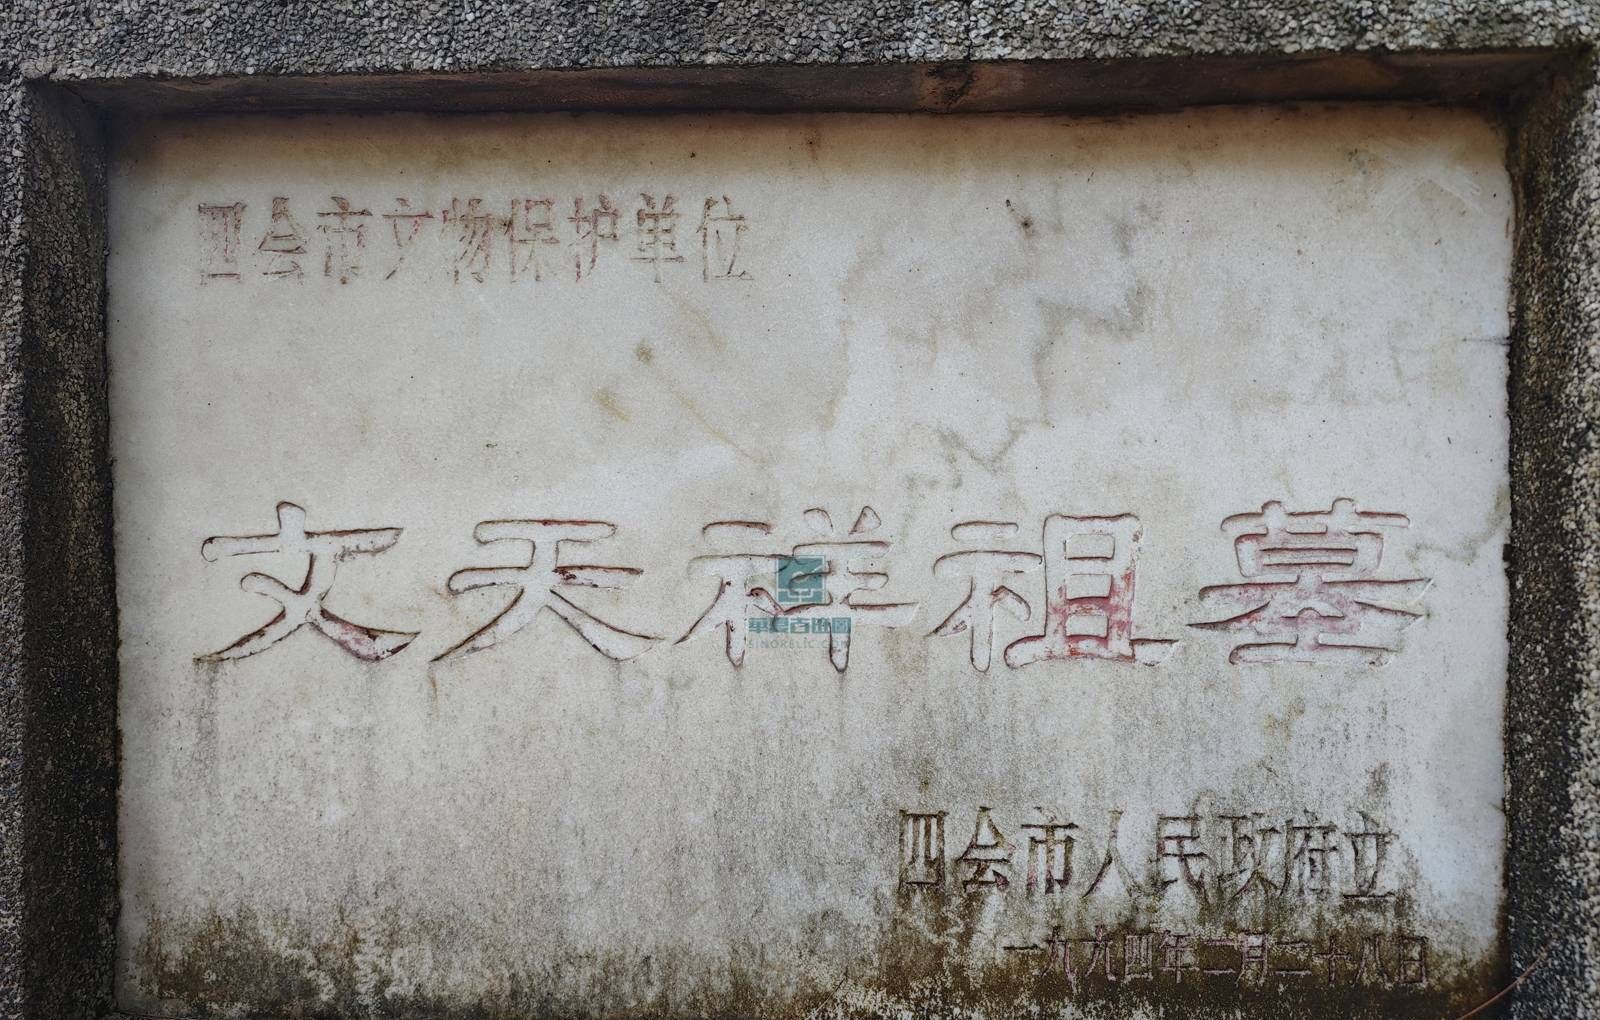 四会市文物保护单位
文天祥祖墓
華夏古迹圖
SINORELIC
四会市人民政府立
一九九四年二月二十八日